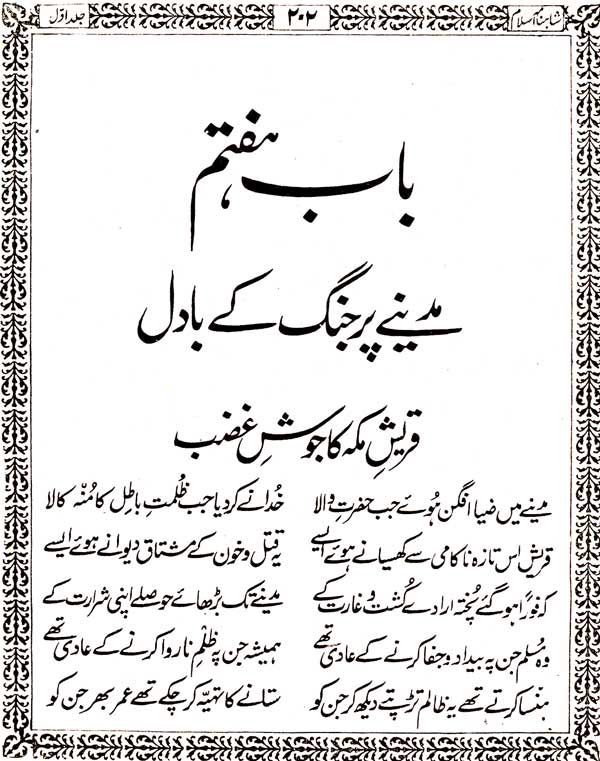 شاہنامۂ اسلام ۲۰۲ جلد اوّل
باب ہفتم
مدینے پر جنگ کے بادل
قریشِ مکہ کا جوشِ غضب
مدینے میں ضیا افگن ہوئے جب حضرتِ والا خدا نے کر دیا جب ظُلمتِ باطل کا مُنہ کالا
قریش اس تازہ ناکامی سے کھسیانے ہوئے ایسے یہ قتل و خون کے مشتاق دیوانے ہوئے ایسے
کہ فوراً ہو گئے پُختہ ارادے کُشت و غارت کے مدینے تک بڑھائے حوصلے اپنی شرارت کے
وہ مُسلم جن پہ بیداد و جفا کرنے کے عادی تھے ہمیشہ جن پہ ظلمِ ناروا کرنے کے عادی تھے
ہنسا کرتے تھے یہ ظالم تڑپتے دیکھ کر جن کو ستانے کا تہیّہ کر چکے تھے عمر بھر جن کو